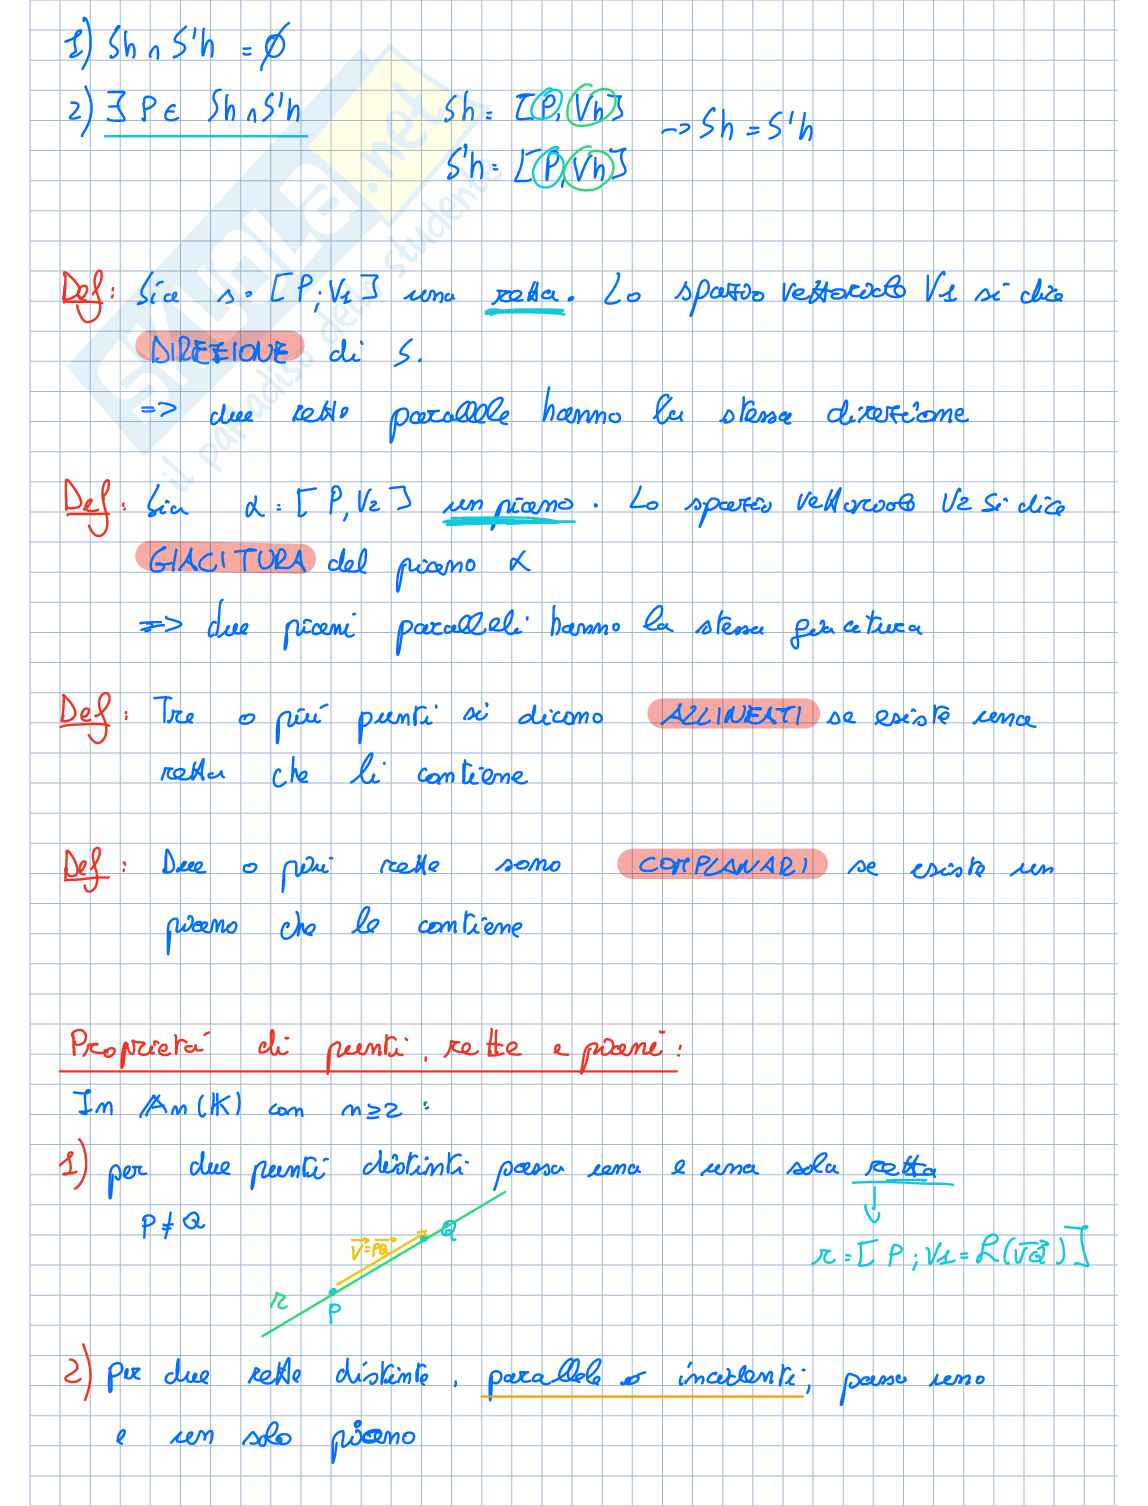 1) Sh ∩ S'h = ∅
2) ∃ P ∈ Sh ∩ S'h
Sh = [P, Vh]
S'h = [P, Vh]
-> Sh = S'h
Def: Sia s = [P; V1] una retta. Lo spazio vettoriale V1 si dice
DIREZIONE di S.
=> due rette parallele hanno la stessa direzione
Def: Sia α = [P, V2] un piano. Lo spazio vettoriale V2 si dice
GIACITURA del piano α
=> due piani paralleli hanno la stessa giacitura
Def: Tre o più punti si dicono ALLINEATI se esiste una
retta che li contiene
Def: Due o più rette sono COMPLANARI se esiste un
piano che le contiene
Proprietà di punti, rette e piani:
In An(K) con n≥2:
1) per due punti distinti passa una e una sola retta
P ≠ Q
V = PQ
Q
P
r
r = [P; V1 = L(VQ)]
2) Per due rette distinte, parallele o incidenti, passa uno
e un solo piano
SKUOLA.net
il paradiso dello studente